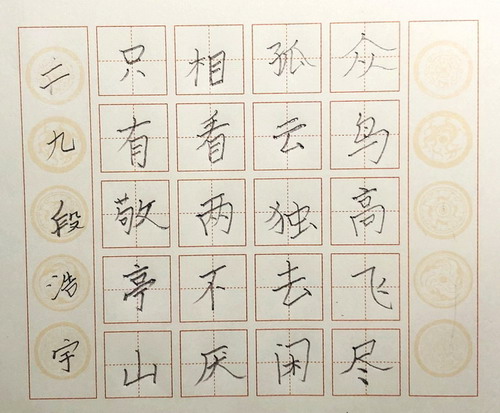 众鸟高飞尽
孤云独去闲
相看两不厌
只有敬亭山
二九段浩宇